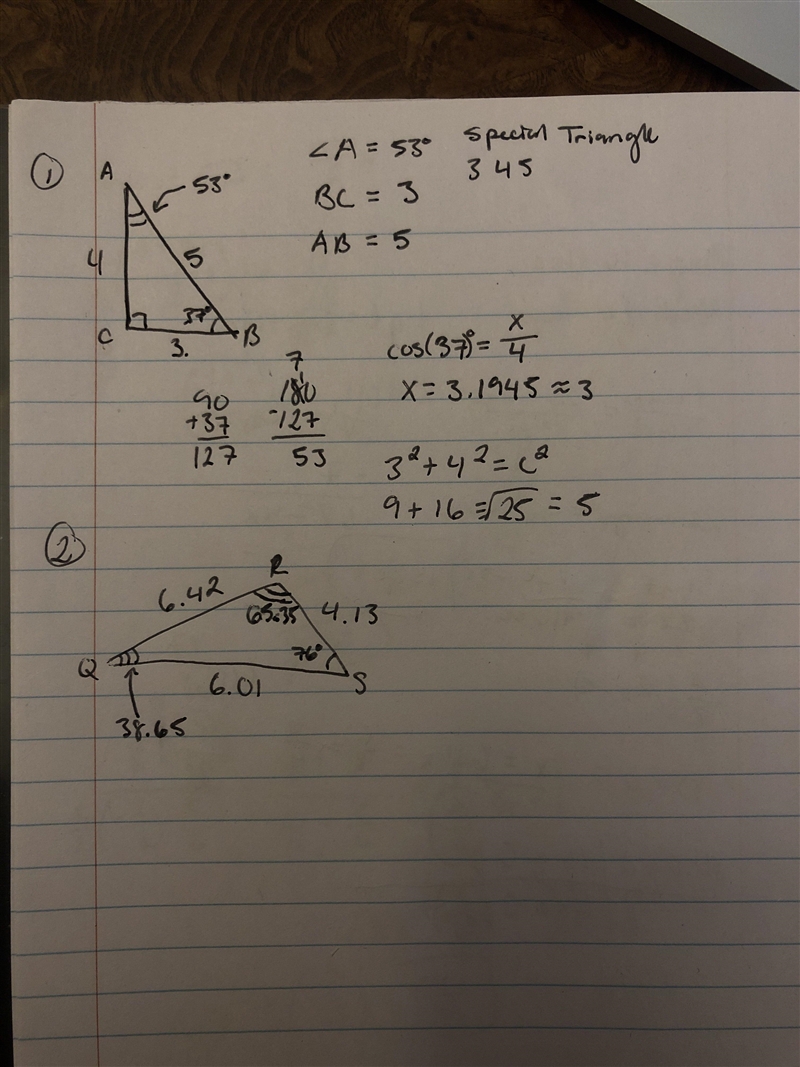 ①
A
53°
4
5
37°
C
3.
B
∠A = 53°
BC = 3
AB = 5
Special Triangle
3 4 5
90
+37
127
7
180
-127
53
cos(37)° = x/4
x = 3.1945 ≈ 3
3² + 4² = c²
9 + 16 = √25 = 5
②
R
6.42
65.35
4.13
Q
76°
S
6.01
38.65